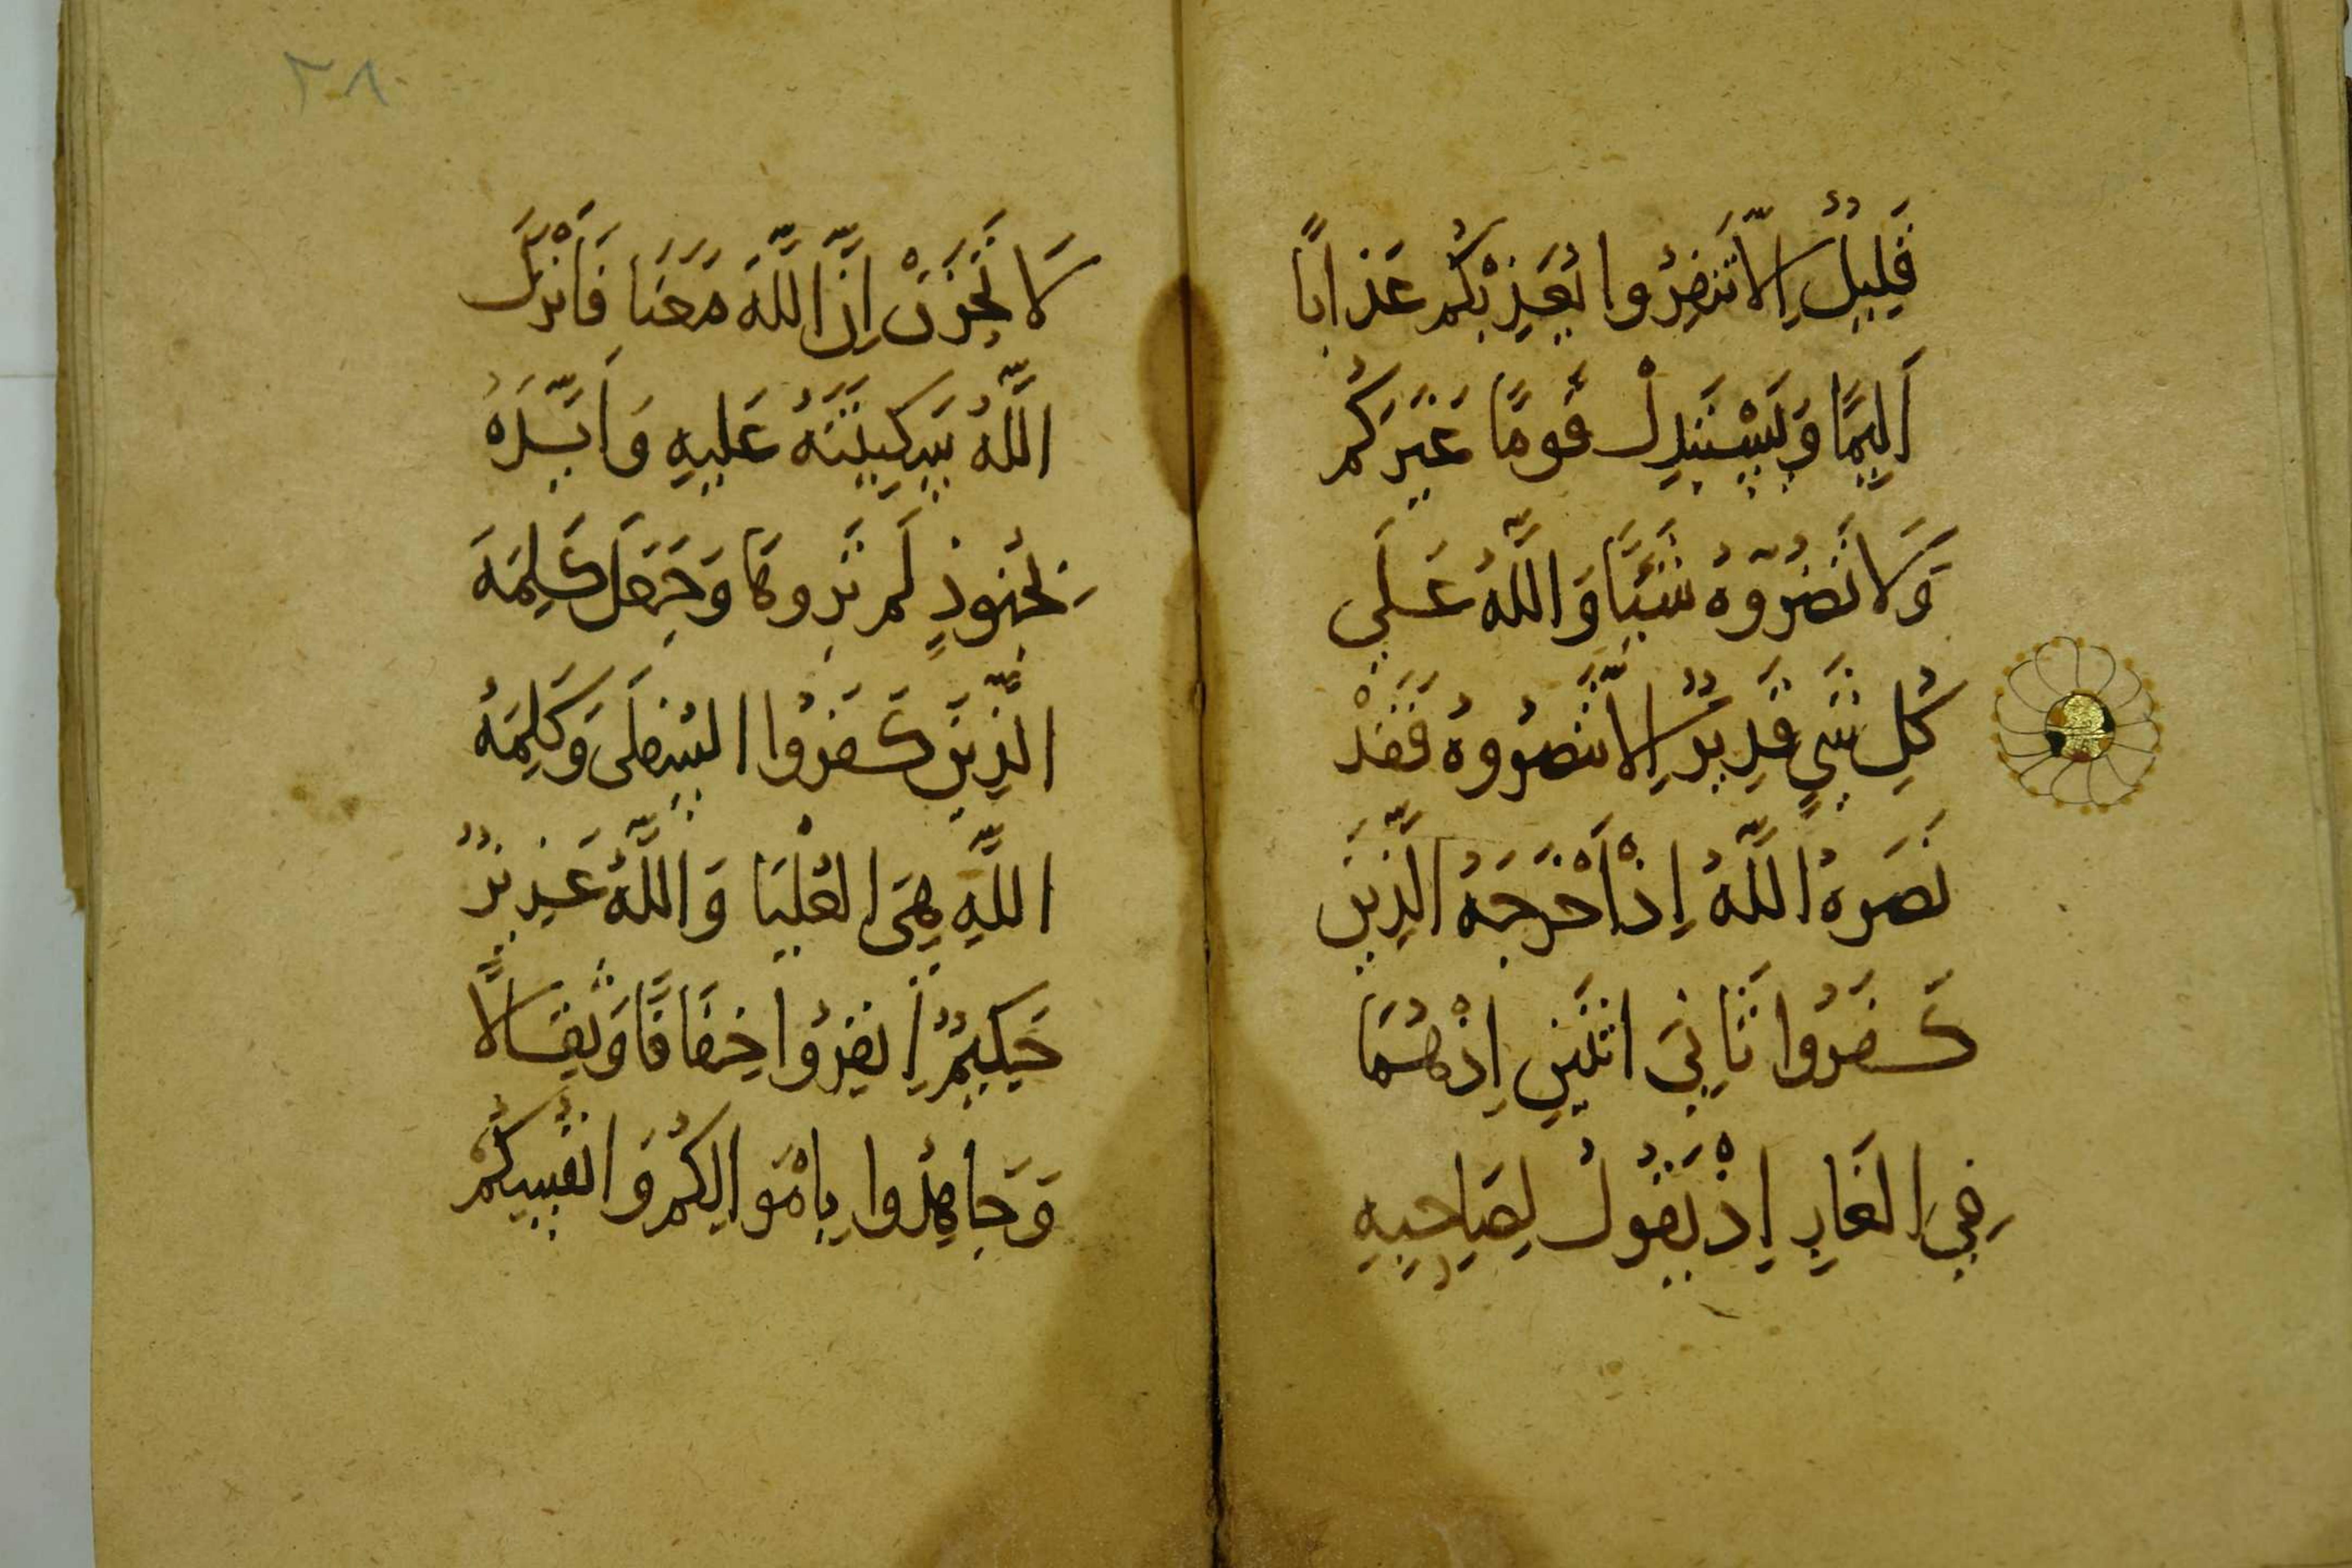 قَلِيلٌ إِلَّا تَنفِرُوا يُعَذِّبْكُم عَذَابًا
أَلِيمًا وَيَسْتَبْدِلْ قَومًا غَيْرَكُم
وَلَا تَضُرُّوهُ شَيْئًا وَاللَّهُ عَلَى
كُلِ شَيٍ قَدِيرٌ إِلَّا تَنصُرُوهُ فَقَدْ
نَصَرَهُ اللَّهُ إِذْ أَخْرَجَهُ الَّذِينَ
كَفَرُوا ثَانِيَ اثْنَينِ إِذْهُمَا
فِي الغَارِ إِذْ يَقُولُ لِصَاحِبِهِ
لَا تَحْزَنْ إِنَّ اللَّهَ مَعَنَا فَأَنْزَلَ
اللَّهُ سَكِينَتَهُ عَلَيهِ وَأَيَّدَهُ
بِجُنُودٍ لَم تَرَوهَا وَجَعَلَ كَلِمَةَ
الَّذِينَ كَفَرُوا السُفلَى وَكَلِمَةُ
اللَّهِ هِيَ العُلْيَا وَاللَّهُ عَزِيزٌ
حَكِيمٌ إِنفِرُوا خِفَافًا وَثِقَالًا
وَجَاهِدُوا بِأَمْوَالِكُم وَأَنْفُسِكُمْ
٣٨